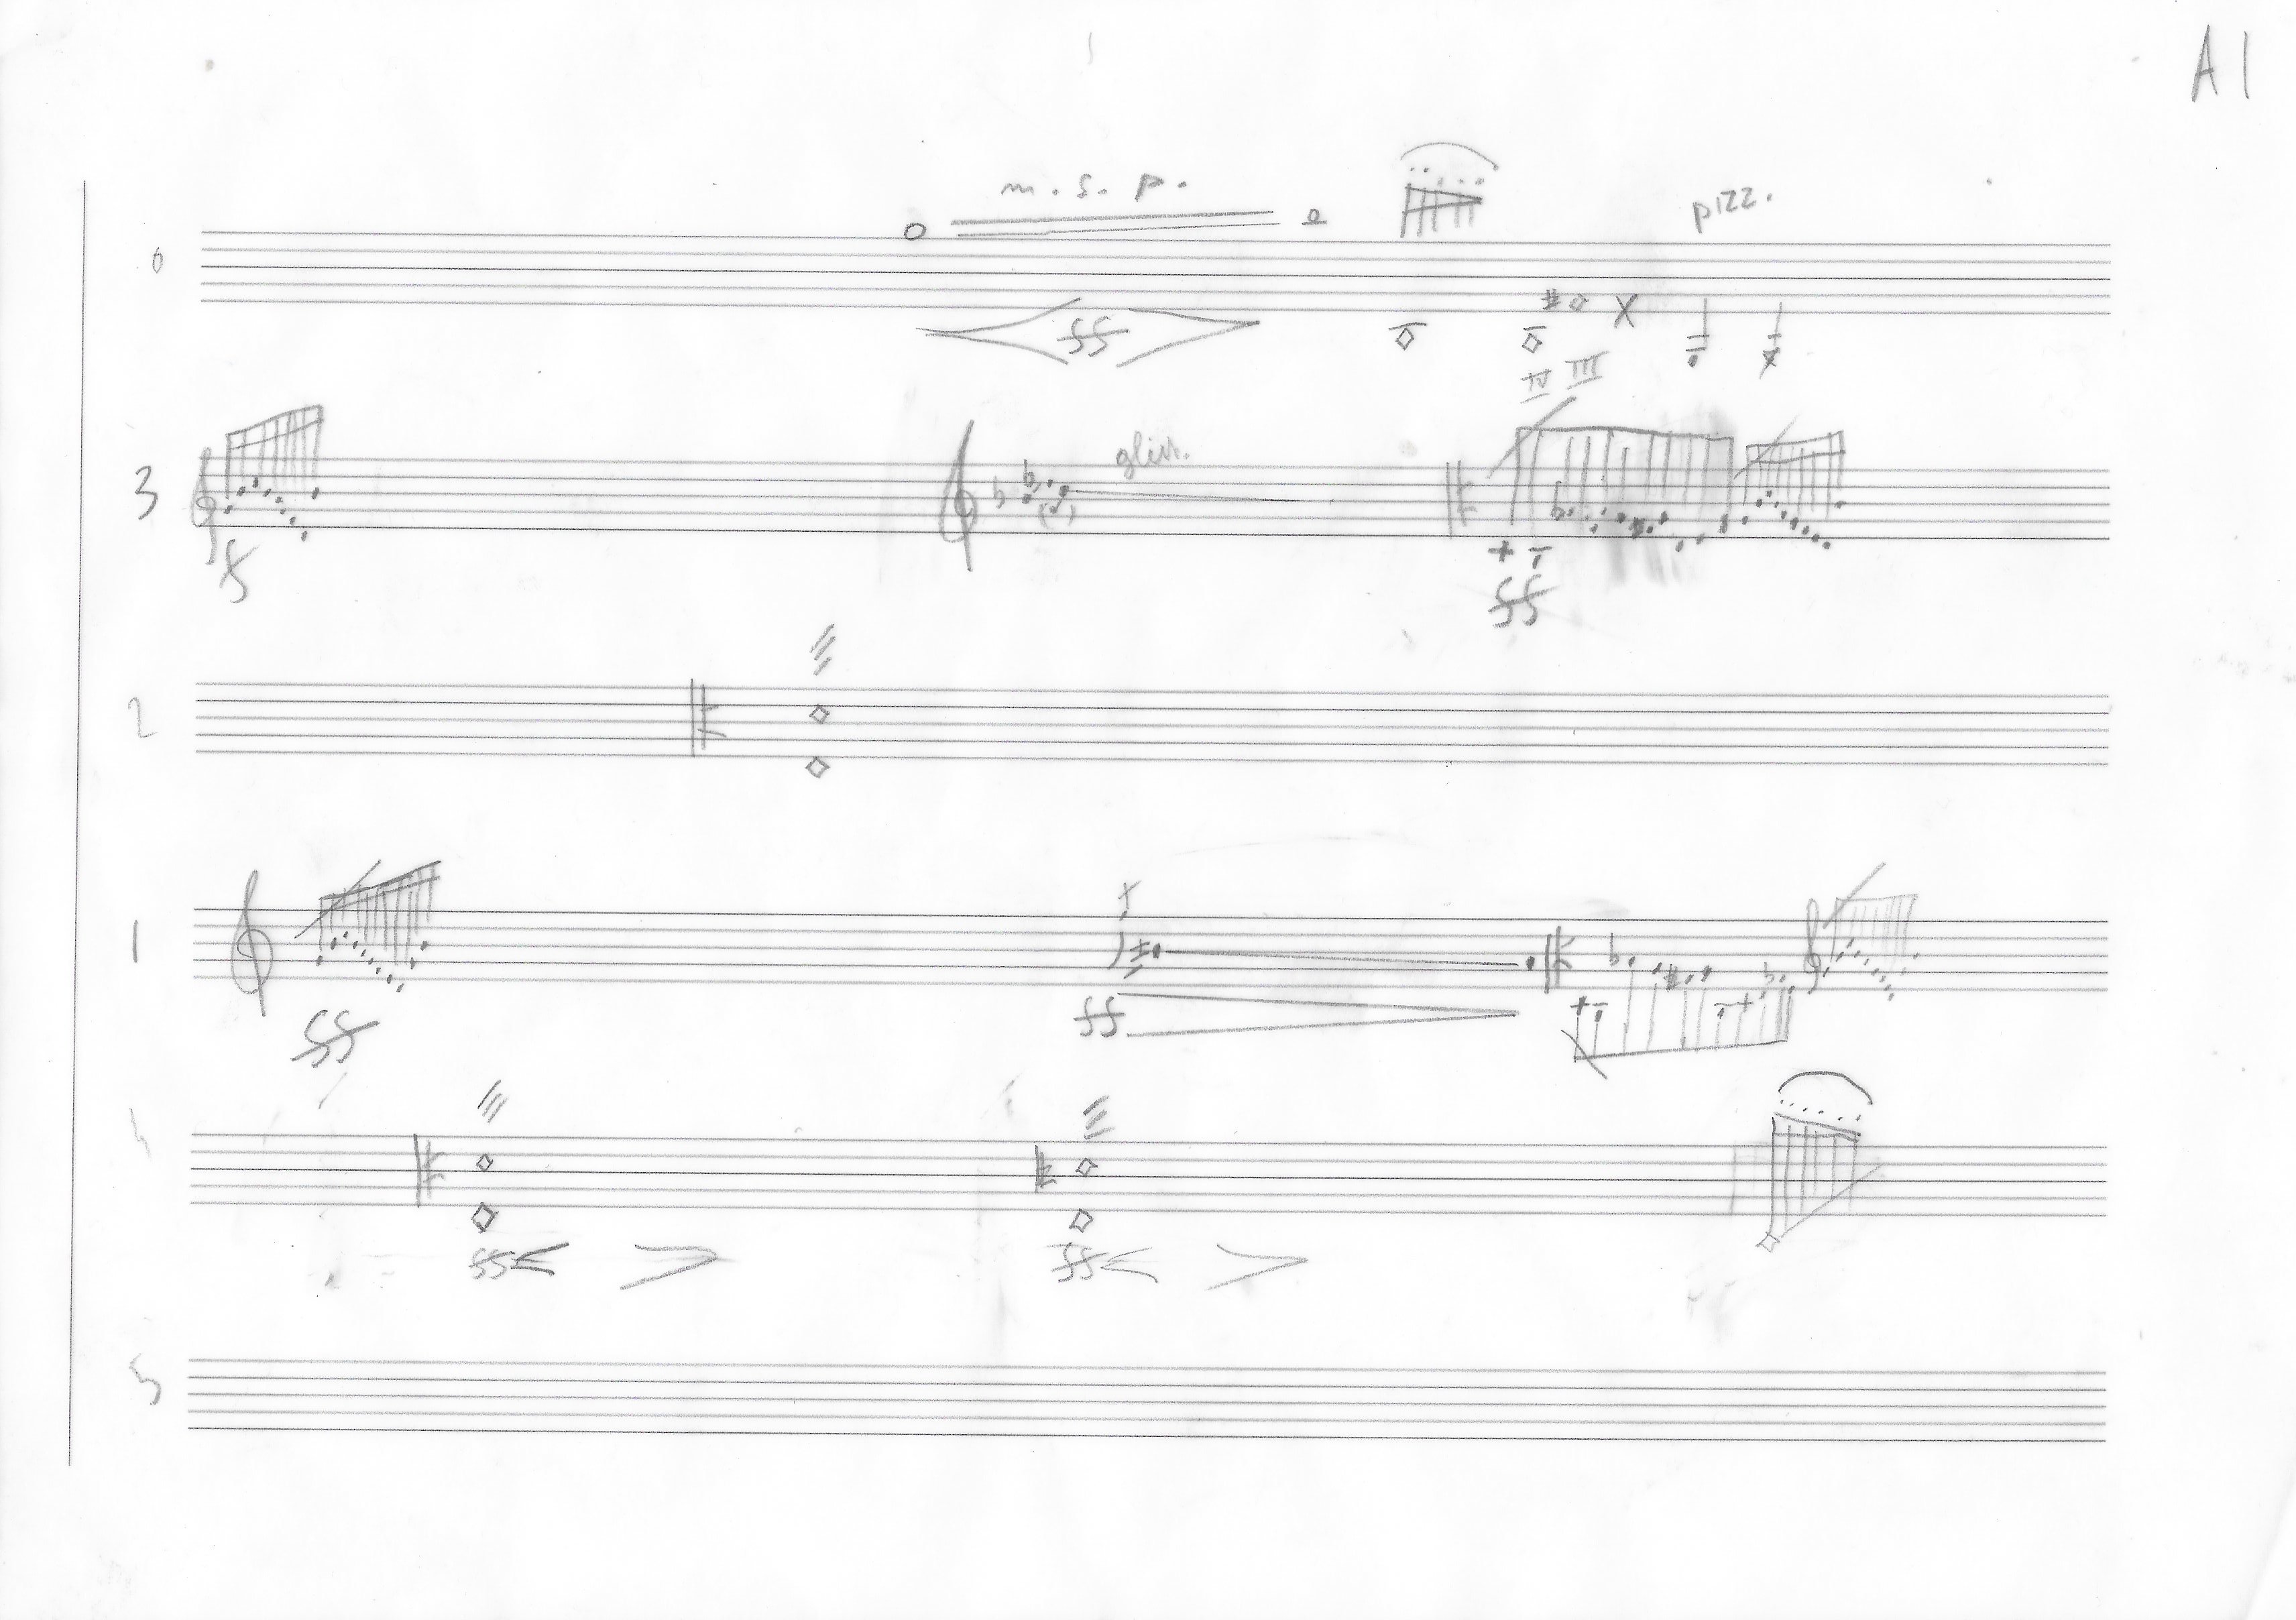 A1
m. s. p.
pizz.
6
ff
IV III
gliss.
3
f
ff
2
1
ff
ff
4
ff
ff
5